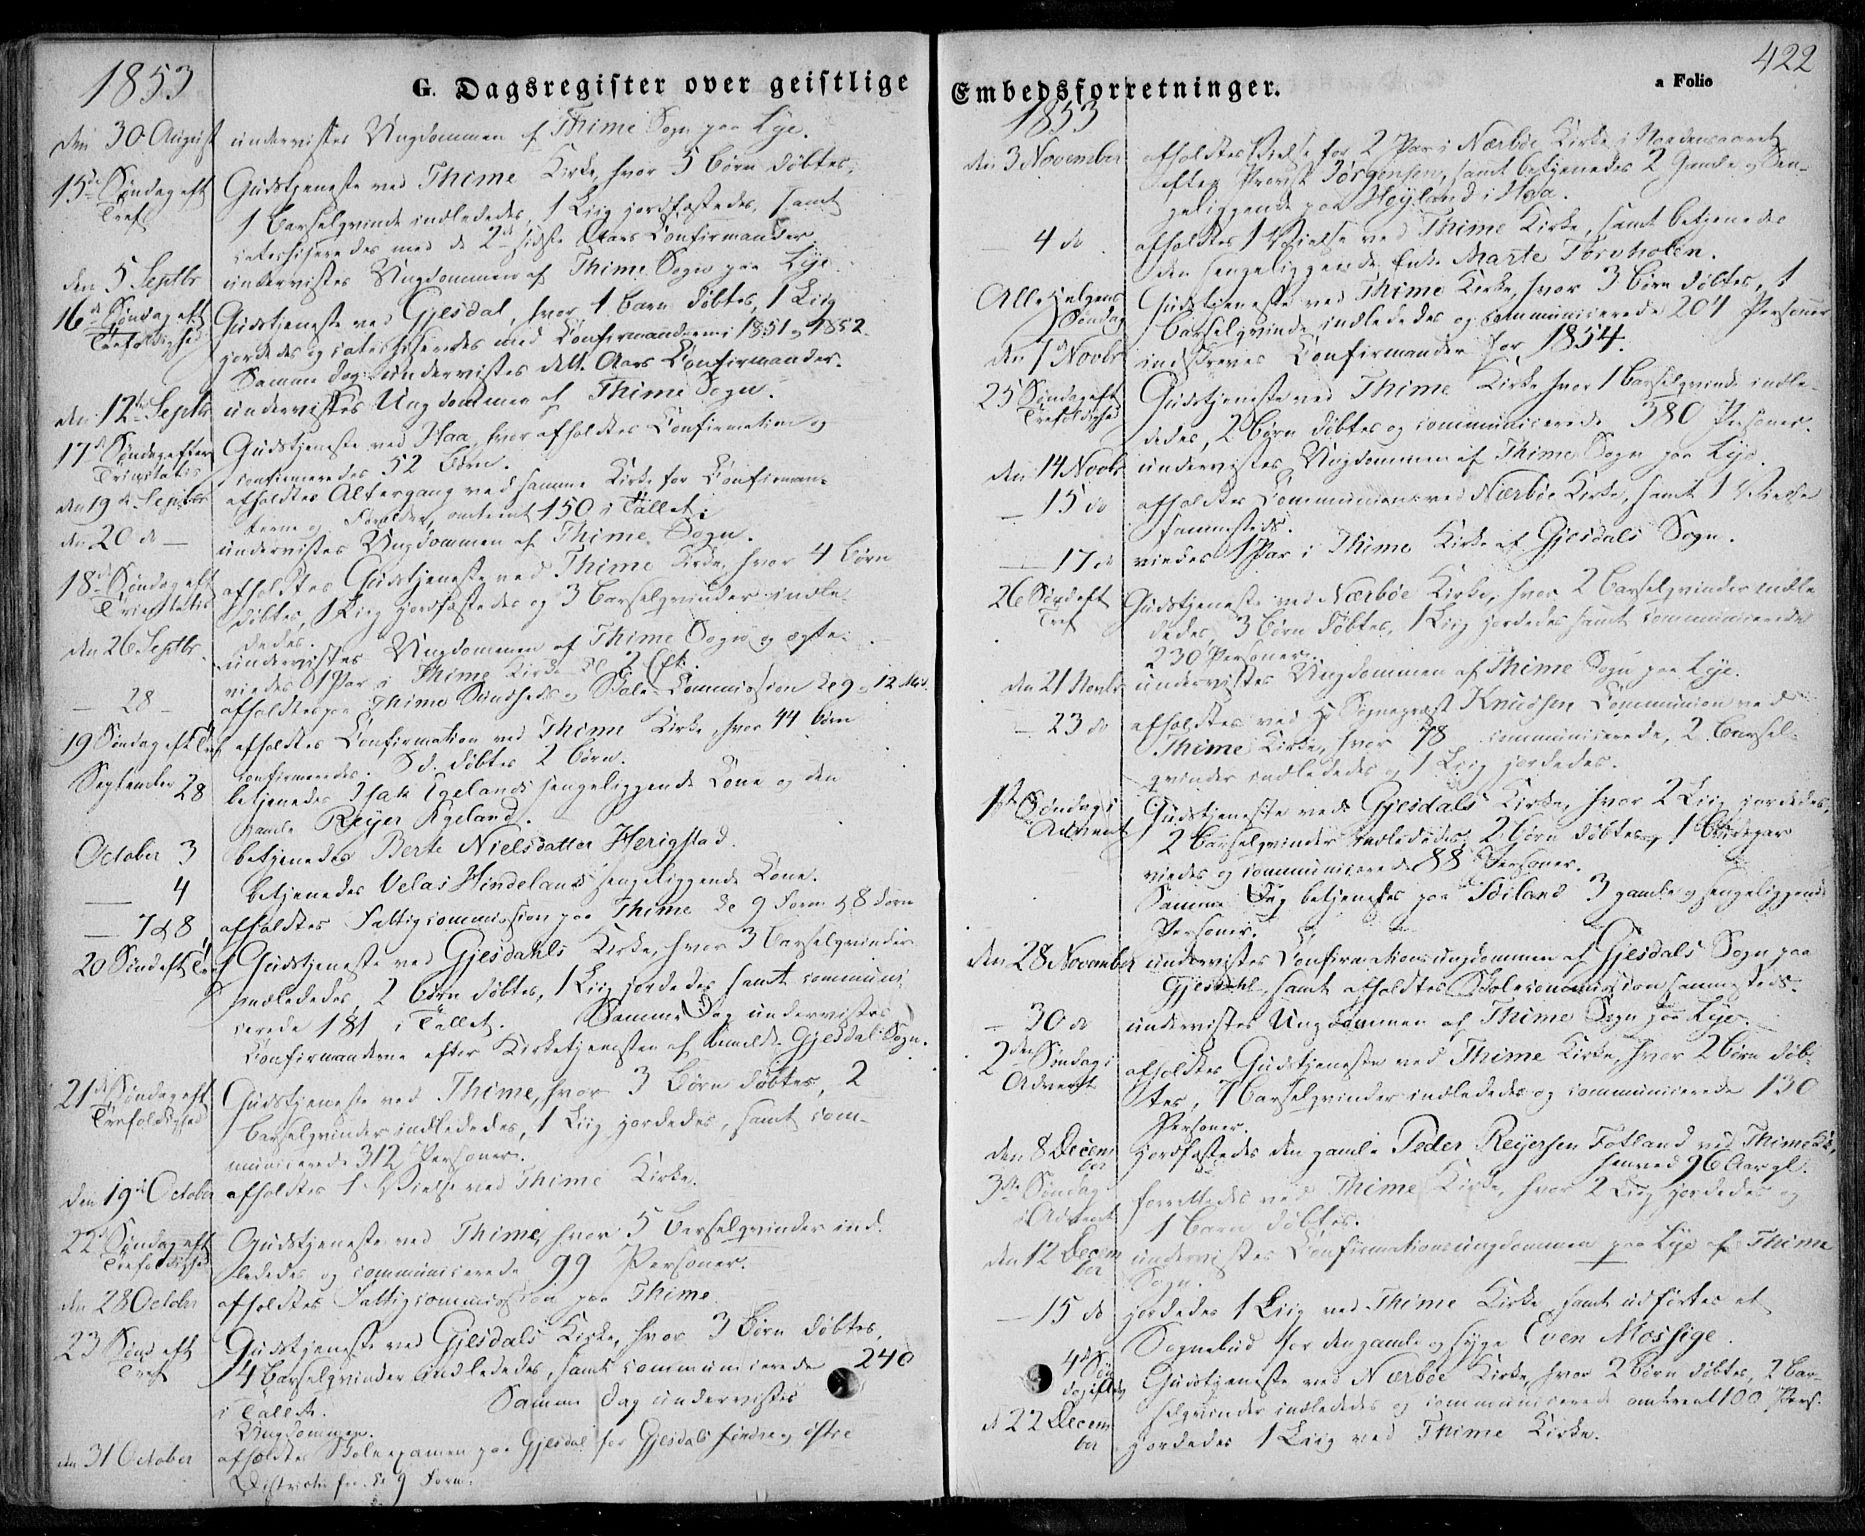 1853
G. Dagsregister over geistlige
den 30 August undervistes Ungdommen af Thime Sogn paa Lye.
15de Søndag eft Gudstjeneste ved Thime Kirke, hvor 5 Børn døbtes,
Tref 1 Barselqvinde indlededes, 1 Liig jordfæstedes, samt
catechiseredes med de 2de sidste Aars Confirmander.
den 5 Septbr undervistes Ungdommen af Thime Sogn paa Lye.
16de Søndag eft Gudstjeneste ved Gjesdal, hvor 1 Barn døbtes, 1 Liig
Trefoldighed jordedes og catechiseredes med Confirmanderne i 1851 og 1852.
Samme Dag undervistes dette Aars Confirmander.
den 12te Septbr undervistes Ungdommen af Thime Sogn.
17de Søndag efter Gudstjeneste ved Haa, hvor afholdtes Confirmation og
Trinitatis confirmeredes 52 Børn.
den 19de Septbr afholdtes Altergang ved samme Kirke for Confirman-
terne og Forældre, omtrent 150 i Tallet.
den 20 do — undervistes Ungdommen af Thime Sogn.
18de Søndag eft afholdtes Gudstjeneste ved Thime Kirke, hvor 4 Børn
Trinitatis døbtes, 1 Liig jordfæstedes og 3 Barselqvinder indle-
dedes.
den 26 Septbr. undervistes Ungdommen af Thime Sogn og egte-
viedes 1 Par i Thime Kirke Kl 2 Eft.
— 28 — afholdtes paa Thime Sundheds og Skole-Commission Kl 9 og 12 Mid.
19 Søndag eft Tref afholdtes Confirmation ved Thime Kirke, hvor 44 Børn
confirmeredes. S. d. døbtes 2 Børn.
September 28 betjenedes Isak Egelands sengeliggende Kone og den
gamle Reyer Egeland.
October 3 betjenedes Berte Nielsdatter Herigstad.
— 4 betjenedes Velas Hindelands sengeliggende Kone.
— 7 & 8 afholdtes Fattigcommission paa Thime Kl 9 Form & 8 Form
20 Sønd eft Tref Gudstjeneste ved Gjesdahls Kirke, hvor 3 Barselqvinder
indlededes, 2 Børn døbtes, 1 Liig jordedes samt communi-
cerede 181 i Tallet. Samme Dag undervistes
Confirmanderne efter Kirketjenesten af Gjesdal Sogn.
21de Søndag eft Gudstjeneste ved Thime, hvor 3 Børn døbtes, 2
Trefoldighed Barselqvinder indlededes, 1 Liig jordedes, samt com-
municerede 312 Personer.
den 19de October afholdtes 1 Vielse ved Thime Kirke.
22de Søndag eft Gudstjeneste ved Thime, hvor 5 Barselqvinder ind-
Trefoldighed lededes og communicerede 99 Personer.
den 28 October afholdtes Fattigcommission paa Thime
23 Sønd eft Gudstjeneste ved Gjesdals Kirke, hvor 3 Børn døbtes,
Tref 4 Barselqvinder indlededes, samt communicerede 240
i Tallet. Samme Dag undervistes
Ungdommen.
den 31 October afholdtes Skoleexamen paa Gjesdal for Gjesdals søndre og østre
Districter fra Kl 9 Form.
422
Embedsforretninger.
a Folio
1853
den 3 November afholdtes Vielse for 2 Par i Nærbøe Kirke i Nordensvaret
efter Provst Jørgensen, samt betjenedes 2 Gamle og Sen-
geliggende paa Høyland i Haa.
— 4 do afholdtes 1 Vielse ved Thime Kirke, samt betjenedes
den sengeliggende Enke Marte Torvholen.
Alle Helgens Gudstjeneste ved Thime Kirke, hvor 3 Børn døbtes, 1
Søndag Barselqvinde indlededes og communicerede 204 Personer
den 7 Novbr indskreves Confirmander for 1854.
25 Søndag eft Gudstjeneste ved Thime Kirke hvor 1 Barselqvinde indle-
Trefoldighed dedes, 2 Børn døbtes og communicerede 380 Personer.
den 14 Novbr undervistes Ungdommen af Thime Sogn paa Lye.
— 15 do afholdtes Communion ved Nærbøe Kirke, samt 1 Vielse
sammesteds.
— 17 do viedes 1 Par i Thime Kirke af Gjesdals Sogn.
26 Sønd eft Gudstjeneste ved Nærbøe Kirke, hvor 2 Barselqvinder indle-
Tref dedes, 3 Børn døbtes, 1 Liig jordedes samt communicerede
230 Personer.
den 21 Novbr undervistes Ungdommen af Thime Sogn paa Lye.
— 23 do afholdtes ved Hr Sognepræst Knudsen Communion ved
Thime Kirke, hvor 78 communicerede, 2 Barsel-
qvinder indlededes og 1 Liig jordedes.
1ste Søndag i Gudstjeneste ved Gjesdals Kirke, hvor 2 Liig jordedes,
Advent 2 Barselqvinder indlededes, 2 Børn døbtes, 1 Brudepar
viedes og communicerede 88 Personer.
Samme Dag betjenedes paa 3 gamle og sengeliggende
Personer.
den 28 November undervistes Confirmationsungdommen af Gjesdals Sogn paa
Gjesdahl, samt afholdtes Skolecommission sammesteds.
— 30 do undervistes Ungdommen af Thime Sogn paa Lye.
2den Søndag i afholdtes Gudstjeneste ved Thime Kirke, hvor 2 Børn døb-
Advent tes, 7 Barselqvinder indlededes og communicerede 130
Personer.
den 8 Decem- jordfæstedes den gamle Peder Reyersen Fotland ved Thime K.,
ber henved 96 Aar gl.
3die Søndag forrettedes ved Thime Kirke, hvor 2 Liig jordedes og
i Advent 1 Barn døbtes.
den 12 Decem- undervistes Confirmationsungdommen paa Lye af Thime
ber Sogn.
— 15 do jordedes 1 Liig ved Thime Kirke samt udførtes et
Sognebud for den gamle og syge Even Mossige.
4de Søn- Gudstjeneste ved Nærbøe Kirke, hvor 2 Børn døbtes, 2 Bar-
dag i Adv selqvinder indlededes og communicerede omtrent 100 Pers.
d 22 Decem- jordedes 1 Liig ved Thime Kirke.
ber